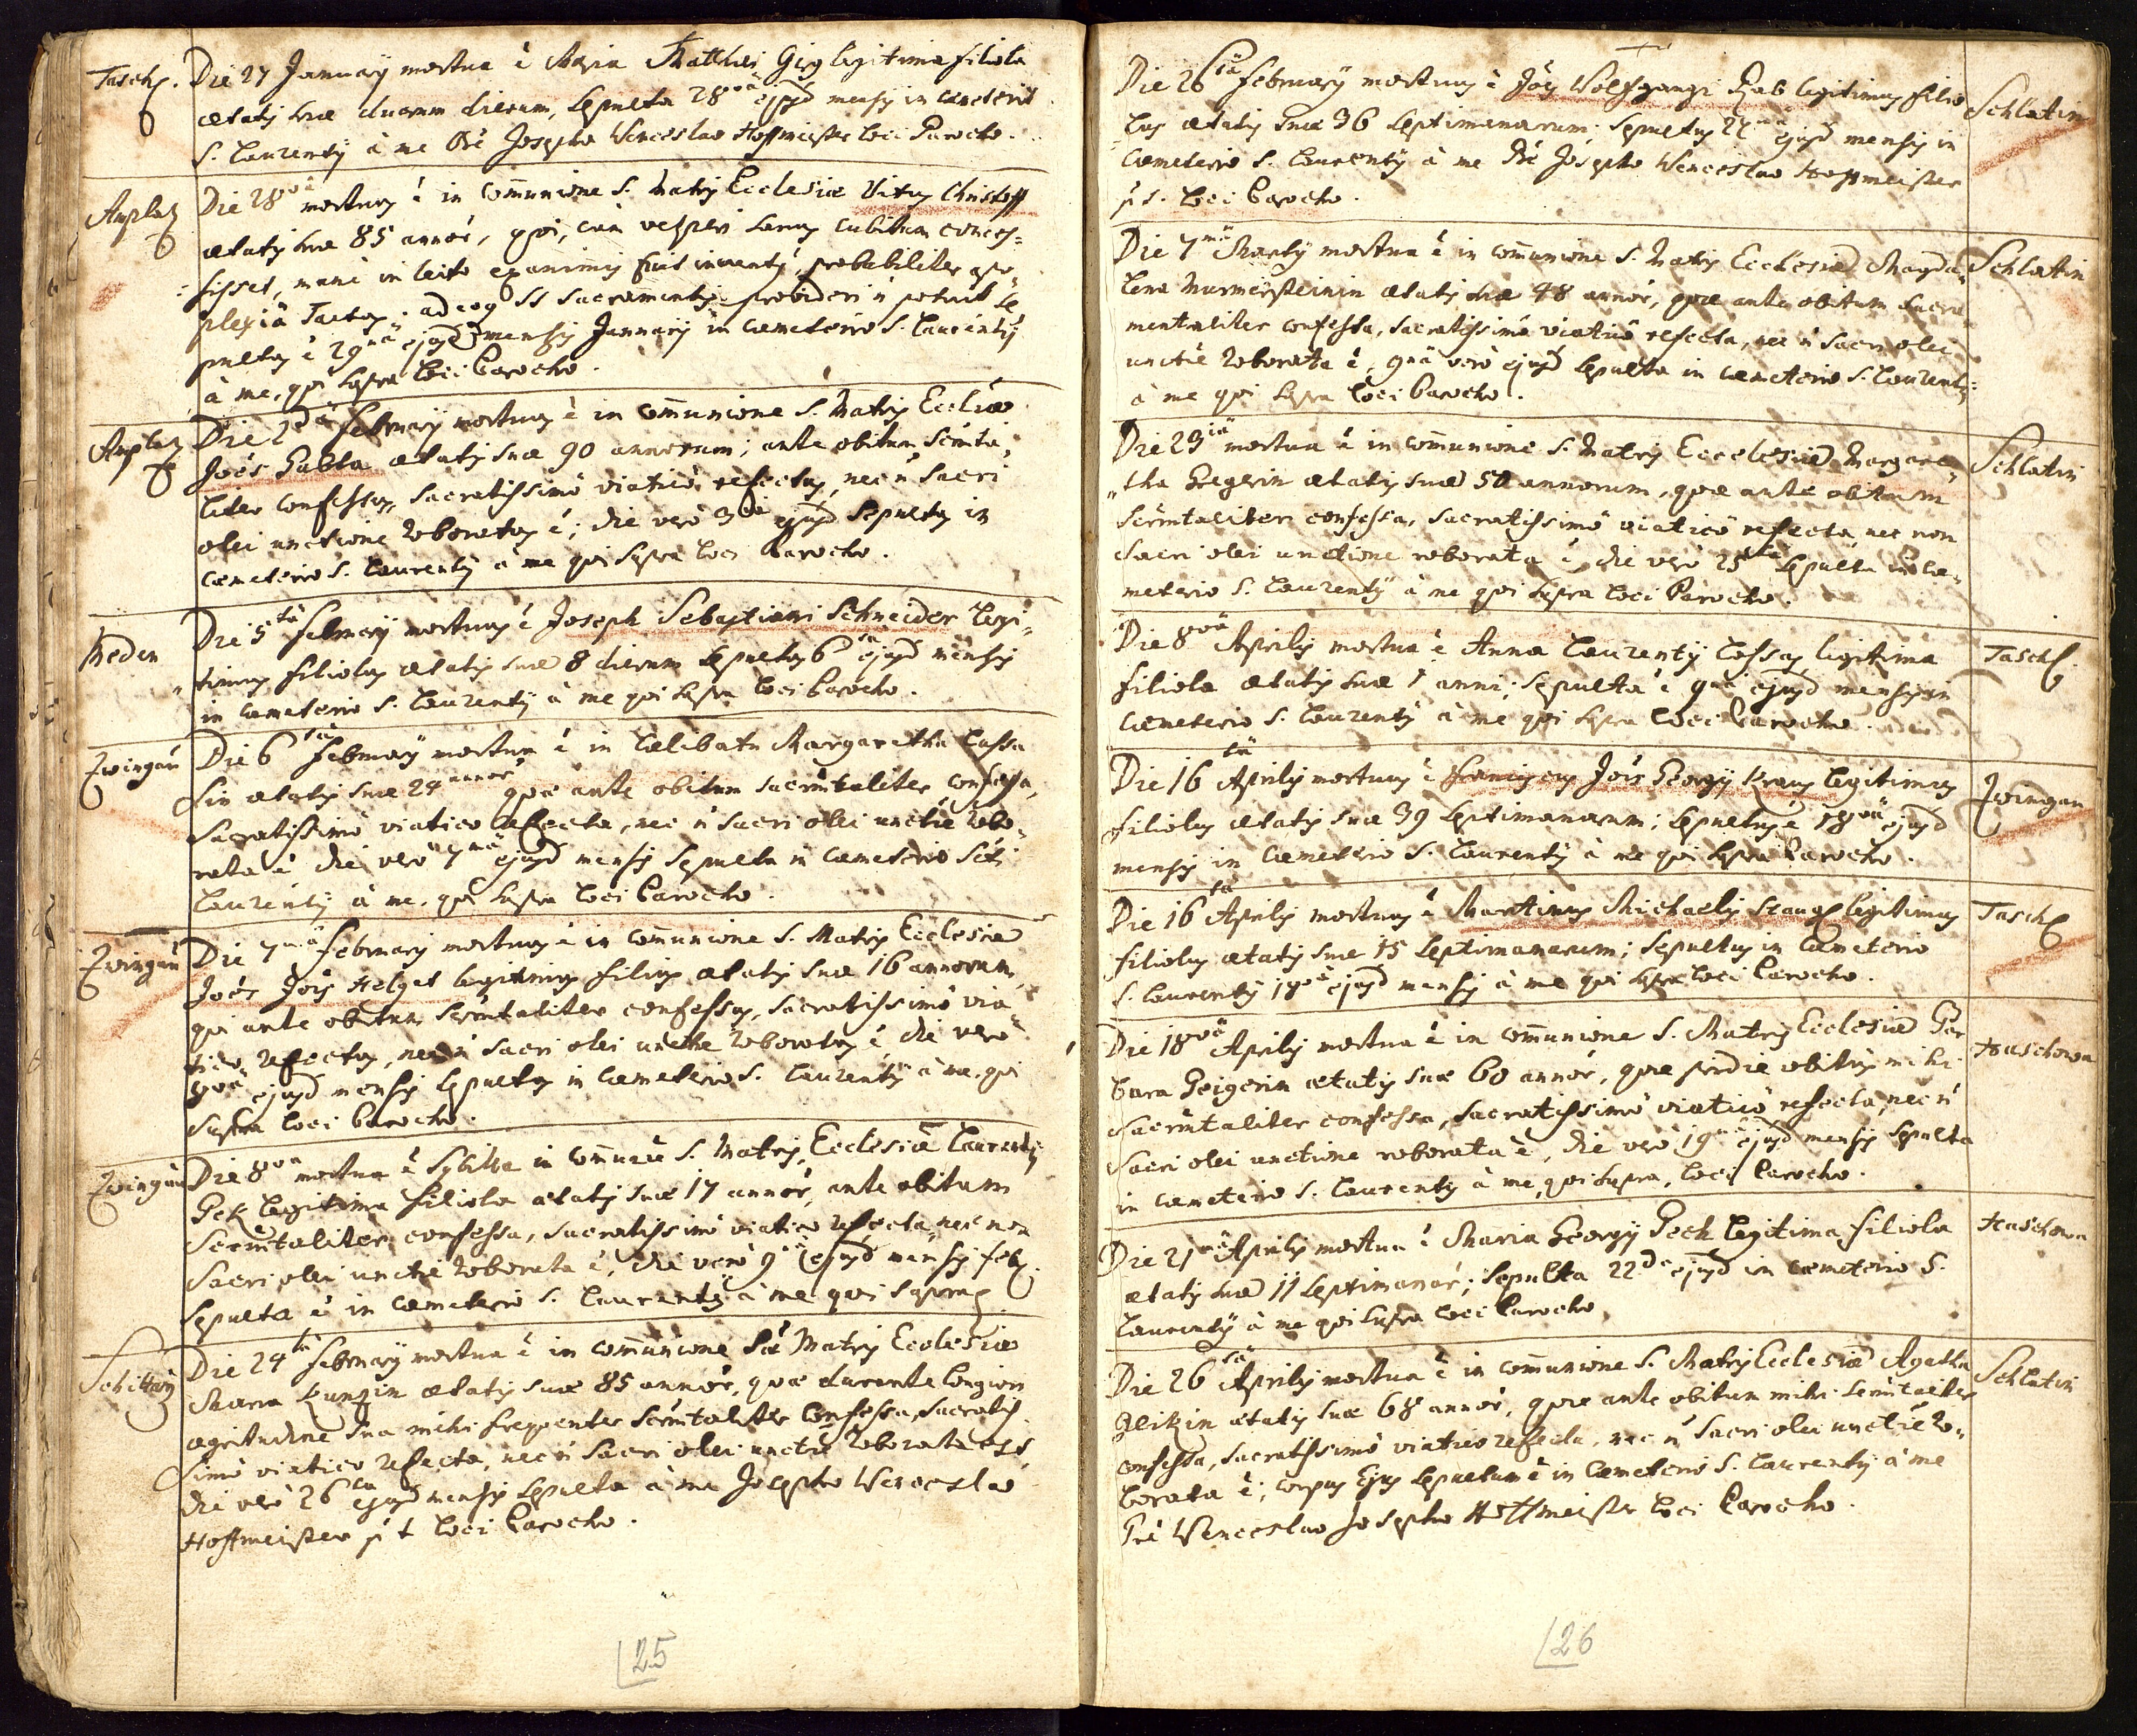 Tasch.
Die 27 January mortua è Maria Matthei Gig legitima filiola
ætatis suæ duarum dierum, sepulta 28va ejusd mensis in cæmeterio
S. Laurentij à me Prè Josepho Wenceslao Hoffmeister loci Parocho.
Anplaz
Die 28va mortuus è in communione S. Matris Ecclesiæ Vitus Christoff
ætatis suæ 85 annor, qui, cum vesperi sanus cubitum conces=
sisset, manè in lecto exanimis fuit inventus, probabiliter apo
plexiâ Tactus. adeoq SS Sacramentis provideri ñ potuit se
pultus è 29na ejusd mensis January in cæmeterio S. Laurentij
à me, qui supra loci Parocho.
Anplaz
Die 2da February mortuus è in communione S. Matris Eccliæ
Joês Gabla ætatis suæ 90 annorum; ante obitum Scrmta=
liter confessus, sacratissimô viaticô refectus, nec ñ sacri
olei unctione roboratus è; die verò 3tia ejusd sepultus in
cæmeterio S. Laurentij à me qui supra loci Parocho.
Heden
Die 5ta February mortuus è Joseph Sebastiani Schneider legi=
timus filiolus ætatis suæ 8 dierum sepultus 6ta ejusd mensis
in cæmeterio S. Laurentij à me qui supra loci Parocho.
Zwingau
Die 6ta February mortua è in cælibatu Margaretha Lassa
sin ætatis suæ 24 annor quæ ante obitum sacrmtaliter confessa,
sacratissimô viatico refecta, nec ñ sacri olei unctiè robo
rata è die verò 7ma ejusd mensis sepulta in cæmeterio Scti
Laurentij à me, qui supra loci Parocho.
Zwingau
Die 7ma February mortuus è in communione S. Matris Ecclesiæ
Joês Jois Helget legitimus filius ætatis suæ 16 annorum,
qui ante obitum scrmtaliter confessus, sacratissimô via
tico refectus, nec ñ sacri olei unctne roboratus è, die vero
8va ejusd mensis sepultus in cæmeterio S. Laurentij à me, qui
supra loci Parocho.
Zwingau
Die 8va mortua è Sybilla in communiè S. Matris Ecclesiæ Laurentij
Pek legitima filiola ætatis suæ 17 annor, ante obitum
Scrmtaliter confessa, sacratissimô viatico refecta, nec non
Sacri olei unctiè roborata è, die verò 9 ejusd mensis feb.
sepulta è in cæmeterio S. Laurentij à me qui supra
Schittwa
Die 24ta February mortua è in communione Sæ Matris Ecclesiæ
Maria Kunzin ætatis suæ 85 annor, quæ durante longiori
ægritudine sua mihi frequenter Scrmtaliter confessa, sacratis
simô viatico refecta, nec ñ sacri olei unctiè roborata est,
die verò 26ta ejusd mensis sepulta à me Josepho Wenceslao
Hoffmeister p t loci Parocho.
25
Die 26ta February mortuus è Joês Wolfgangi Rab legitimus filio
lus ætatis suæ 36 septimanarum; sepultus 27ma ejusd mensis in
cæmeterio S. Laurentij à me Prè Josepho Wenceslao Hoffmeister
p t. loci Parocho.
Schlatin
Die 7ma Marty mortua è in communione S. Matris Ecclesiæ Magda=
lena Murmersteinin ætatis suæ 48 annor, quæ ante obitum sacra
mentaliter confessa, sacratissimô viaticô refecta, nec ñ sacri olei
unctiè roborata è, 9na verò ejusd sepulta in cæmeterio S. Laurentij
à me qui supra loci Parocho.
Schlatin
Die 23tia mortua è in communione S. Matris Ecclesiæ Margare=
tha Gregerin ætatis suæ 50 annorum, quæ ante obitum
Scrmtaliter confessa, sacratissimô viaticô refecta nec non
Sacri olei unctione roborata è, die verò 25ta sepulta in cæ=
meterio S. Laurentij à me qui supra loci Parocho.
Schlatin
Die 8va Aprilis mortua è Anna Laurentij Lassas legitima
filiola ætatis suæ 1 anni; sepulta è 9na ejusd mensis in
cæmeterio S. Laurentij à me qui supra loci Parocho.
Tasch
Die 16ta Aprilis mortuus è Franciscus Jois Georgij Kraus legitimus
filiolus ætatis suæ 39 septimanarum; sepultus è 18va ejusd
mensis in cæmeterio S. Laurentij à me qui supra Parocho.
Zwingau
Die 16ta Aprilis mortuus è Martinus Michaelis Stangl legitimus
filiolus ætatis suæ 15 septimanarum; sepultus in cæmeterio
S. Laurentij 18va ejusd mensis à me qui supra loci Parocho.
Tasch
Die 18va Aprilis mortua è in communione S. Matris Ecclesiæ Bar
bara Geigerin ætatis suæ 60 annor, quæ pridie obitus mihi
Sacrmtaliter confessa, sacratissimô viaticô refecta, nec ñ
Sacri olei unctione roborata è, die verò 19na ejusd mensis sepulta
in cæmeterio S. Laurentij à me, qui supra, loci Parocho.
Haschowa
Die 21ma Aprilis mortua è Maria Georgij Pech legitima filiola
ætatis suæ 11 septimanar; sepulta 22da ejusd in cæmeterio S.
Laurentij à me qui supra loci Parocho
Haschowa
Die 26ta Aprilis mortua è in communione S. Matris Ecclesiæ Agatha
Gleikin ætatis suæ 68 annor, quæ ante obitum mihi Scrmtaliter
confessa, sacratissimô viatico refecta, nec ñ sacri olei unctiè ro=
borata è; corpus Ejus sepultum è in cæmeterio S. Laurentij à me
Prè Wenceslao Josepho Hoffmeister loci Parocho.
Schlatin
26